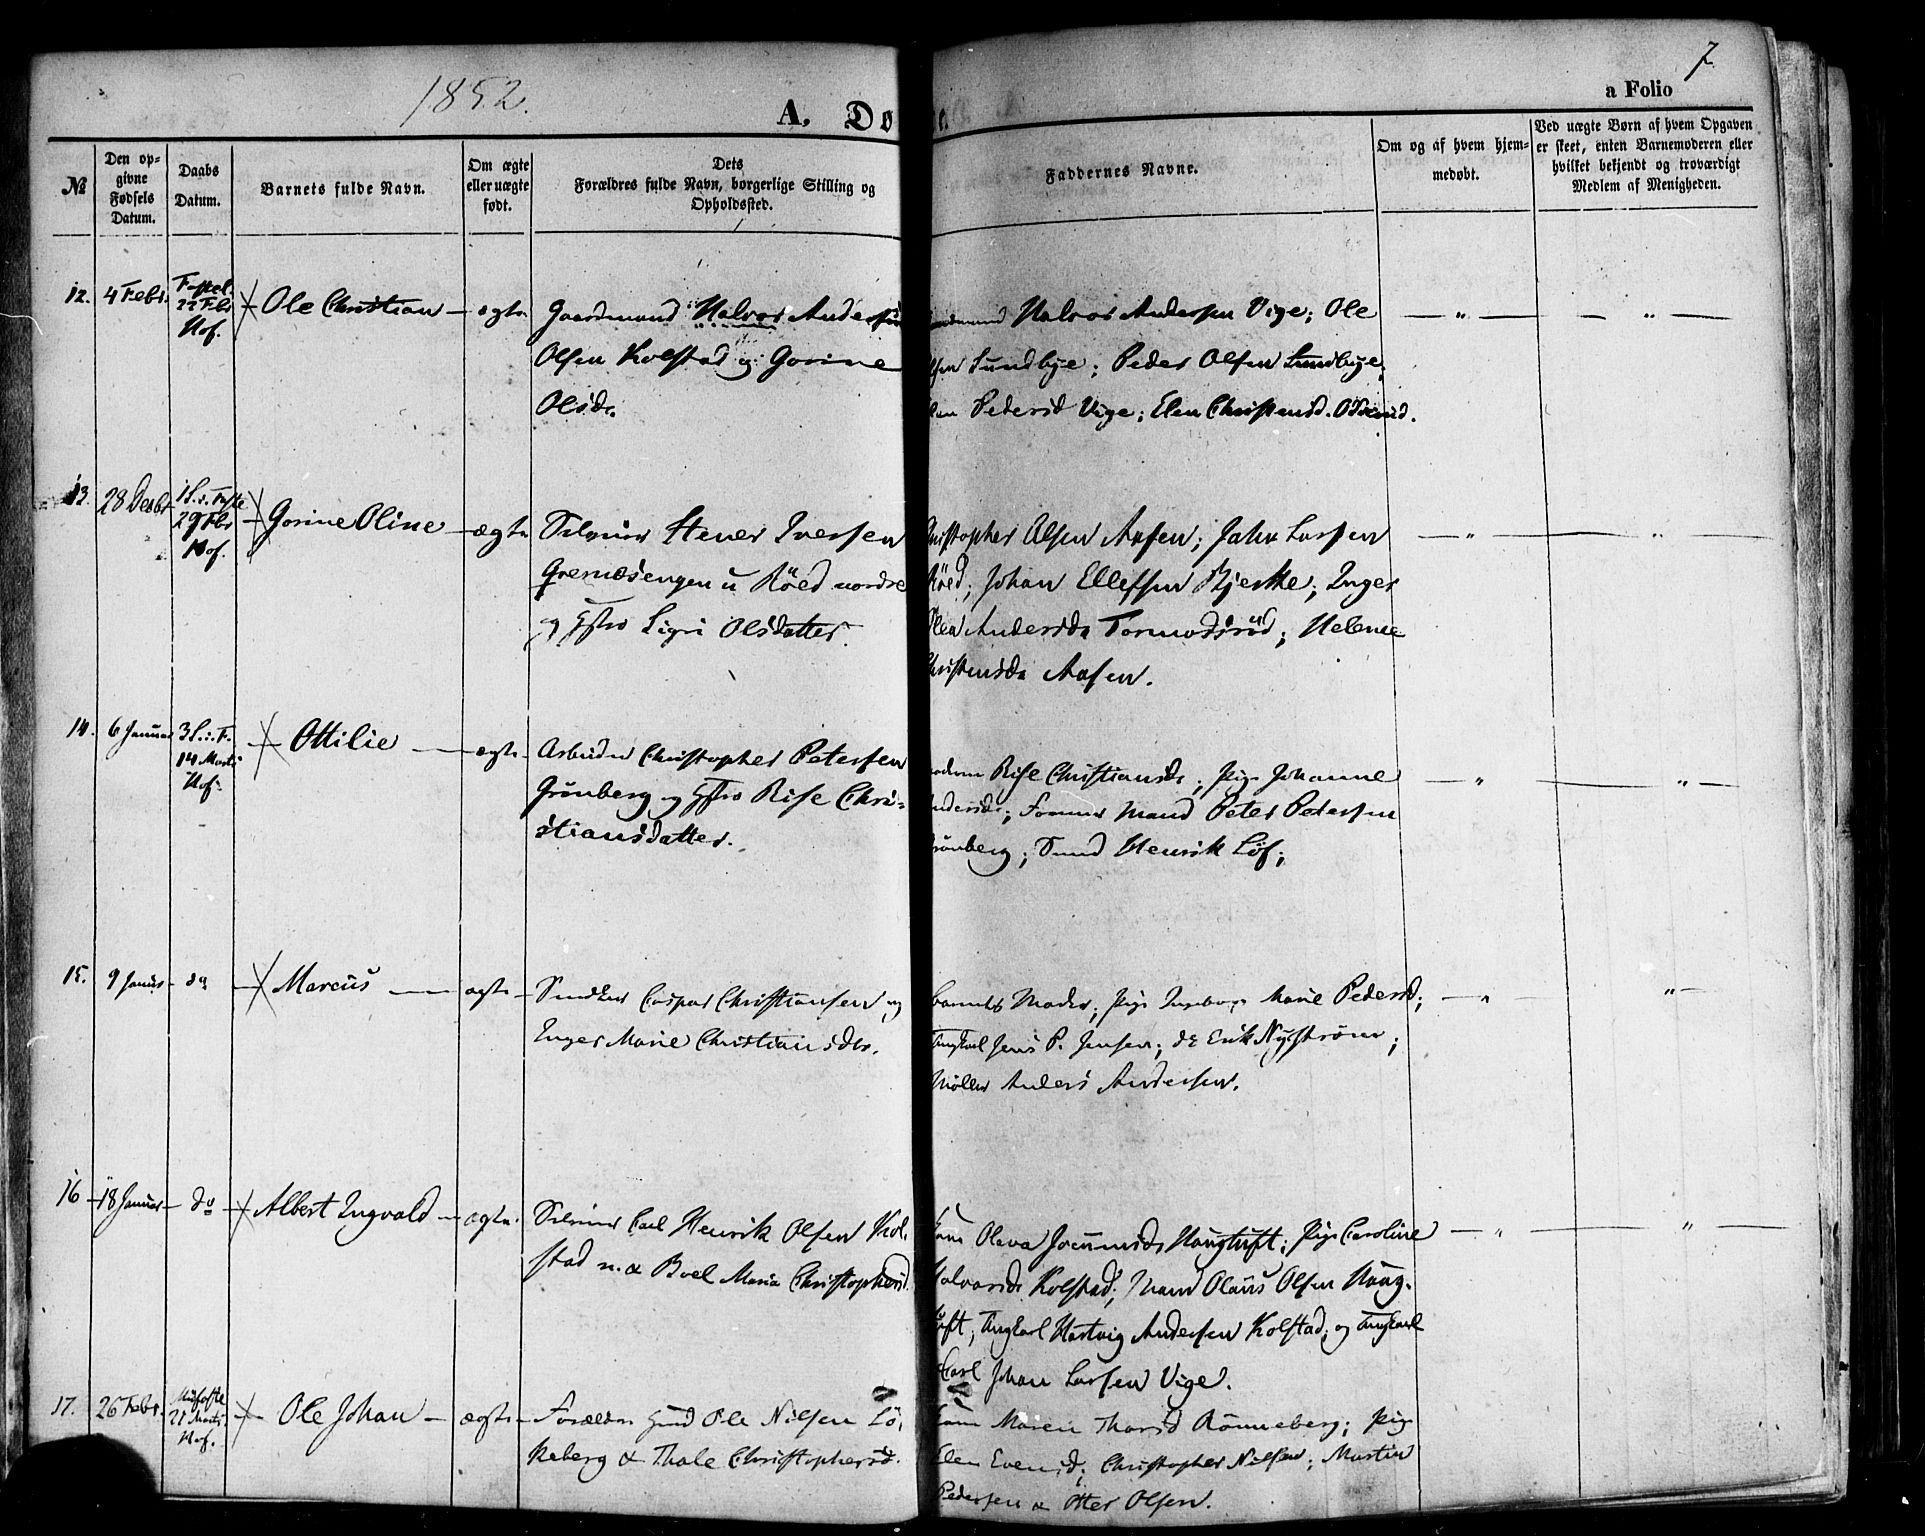 1852.
7
A. Dø
a Folio
№
Den op-
givne
Fødsels
Datum.
Daabs
Datum.
Barnets fulde Navn.
Om ægte
eller uægte
født.
Dets
Forældres fulde Navn, borgerlige Stilling og
Opholdssted.
Faddernes Navne.
Om og af hvem hjem-
medøbt.
Ved uægte Børn af hvem Opgaven
er skeet, enten Barnemoderen eller
hvilket bekjendt og troværdigt
Medlem af Menigheden.
12. 4 Febr. Fastel. 22 Febr Hof. Ole Christian ægte Gaardmand Halvor Andersen
Olsen Kolstad og Gorine
Olsdr.
Halvor Andersen Vige; Ole
Sundbye; Peder Olsen Sundbye;
Pedersd Vige; Elen Christensd.
13. 28 Decbr 1 S. i Faste 29 Fbr Hof. Gorine Oline ægte Selveier Stener Iversen
Grernæsengen u Röed nordre
og Hstro Sigri Olsdatter.
Christopher Olsen Aasen; John Larsen
Röed; Johan Ellefsen Bjerke; Inger
Olea Andersdr Tormodsröd; Helene
Christensdr Aasen.
14. 6 Januar 3 S. i F. 14 Marts Hof. Ottilie ægte Arbeider Christopher Petersen
Grönberg og Hstro Rise Chri-
stiansdatter.
Rise Christiansdr; Pige Johanne
Andersdr; Formand Peter Pedersen
Grönberg; Svend Henrik Löf;
15. 9 Januar do Marcus ægte Snedker Caspar Christiansen og
Inger Marie Christiansdtr.
Barnets Moder; Pige Ingeborg Marie Pedersd;
Ungkarl Jens P. Jensen; do Erik Nyströme;
Möller Anders Andersen.
16 18 Januar do Albert Ingvald ægte Selveier Carl Henrik Olsen Kol-
stad n. & Boel Maria Christophersd.
Kone Oleva Haugtuft; Pige Caroline
Halvorsdr Kolstad; Mand Olaus Olsen Haug-
tuft; Ungkarl Hartvig Andersen Kolstad; og Ungkarl
Carl Johan Larsen Vige.
17. 26 Febr. Midfaste 21 Marts Hof. Ole Johan ægte Forældre Hmd Ole Nilsen Lö-
keberg & Thale Christophersd.
Kone Maren Thorsd Rönneberg; Pige
Elen Evensd; Christopher Nilsen; Martin
Pedersen & Otter Olsen.